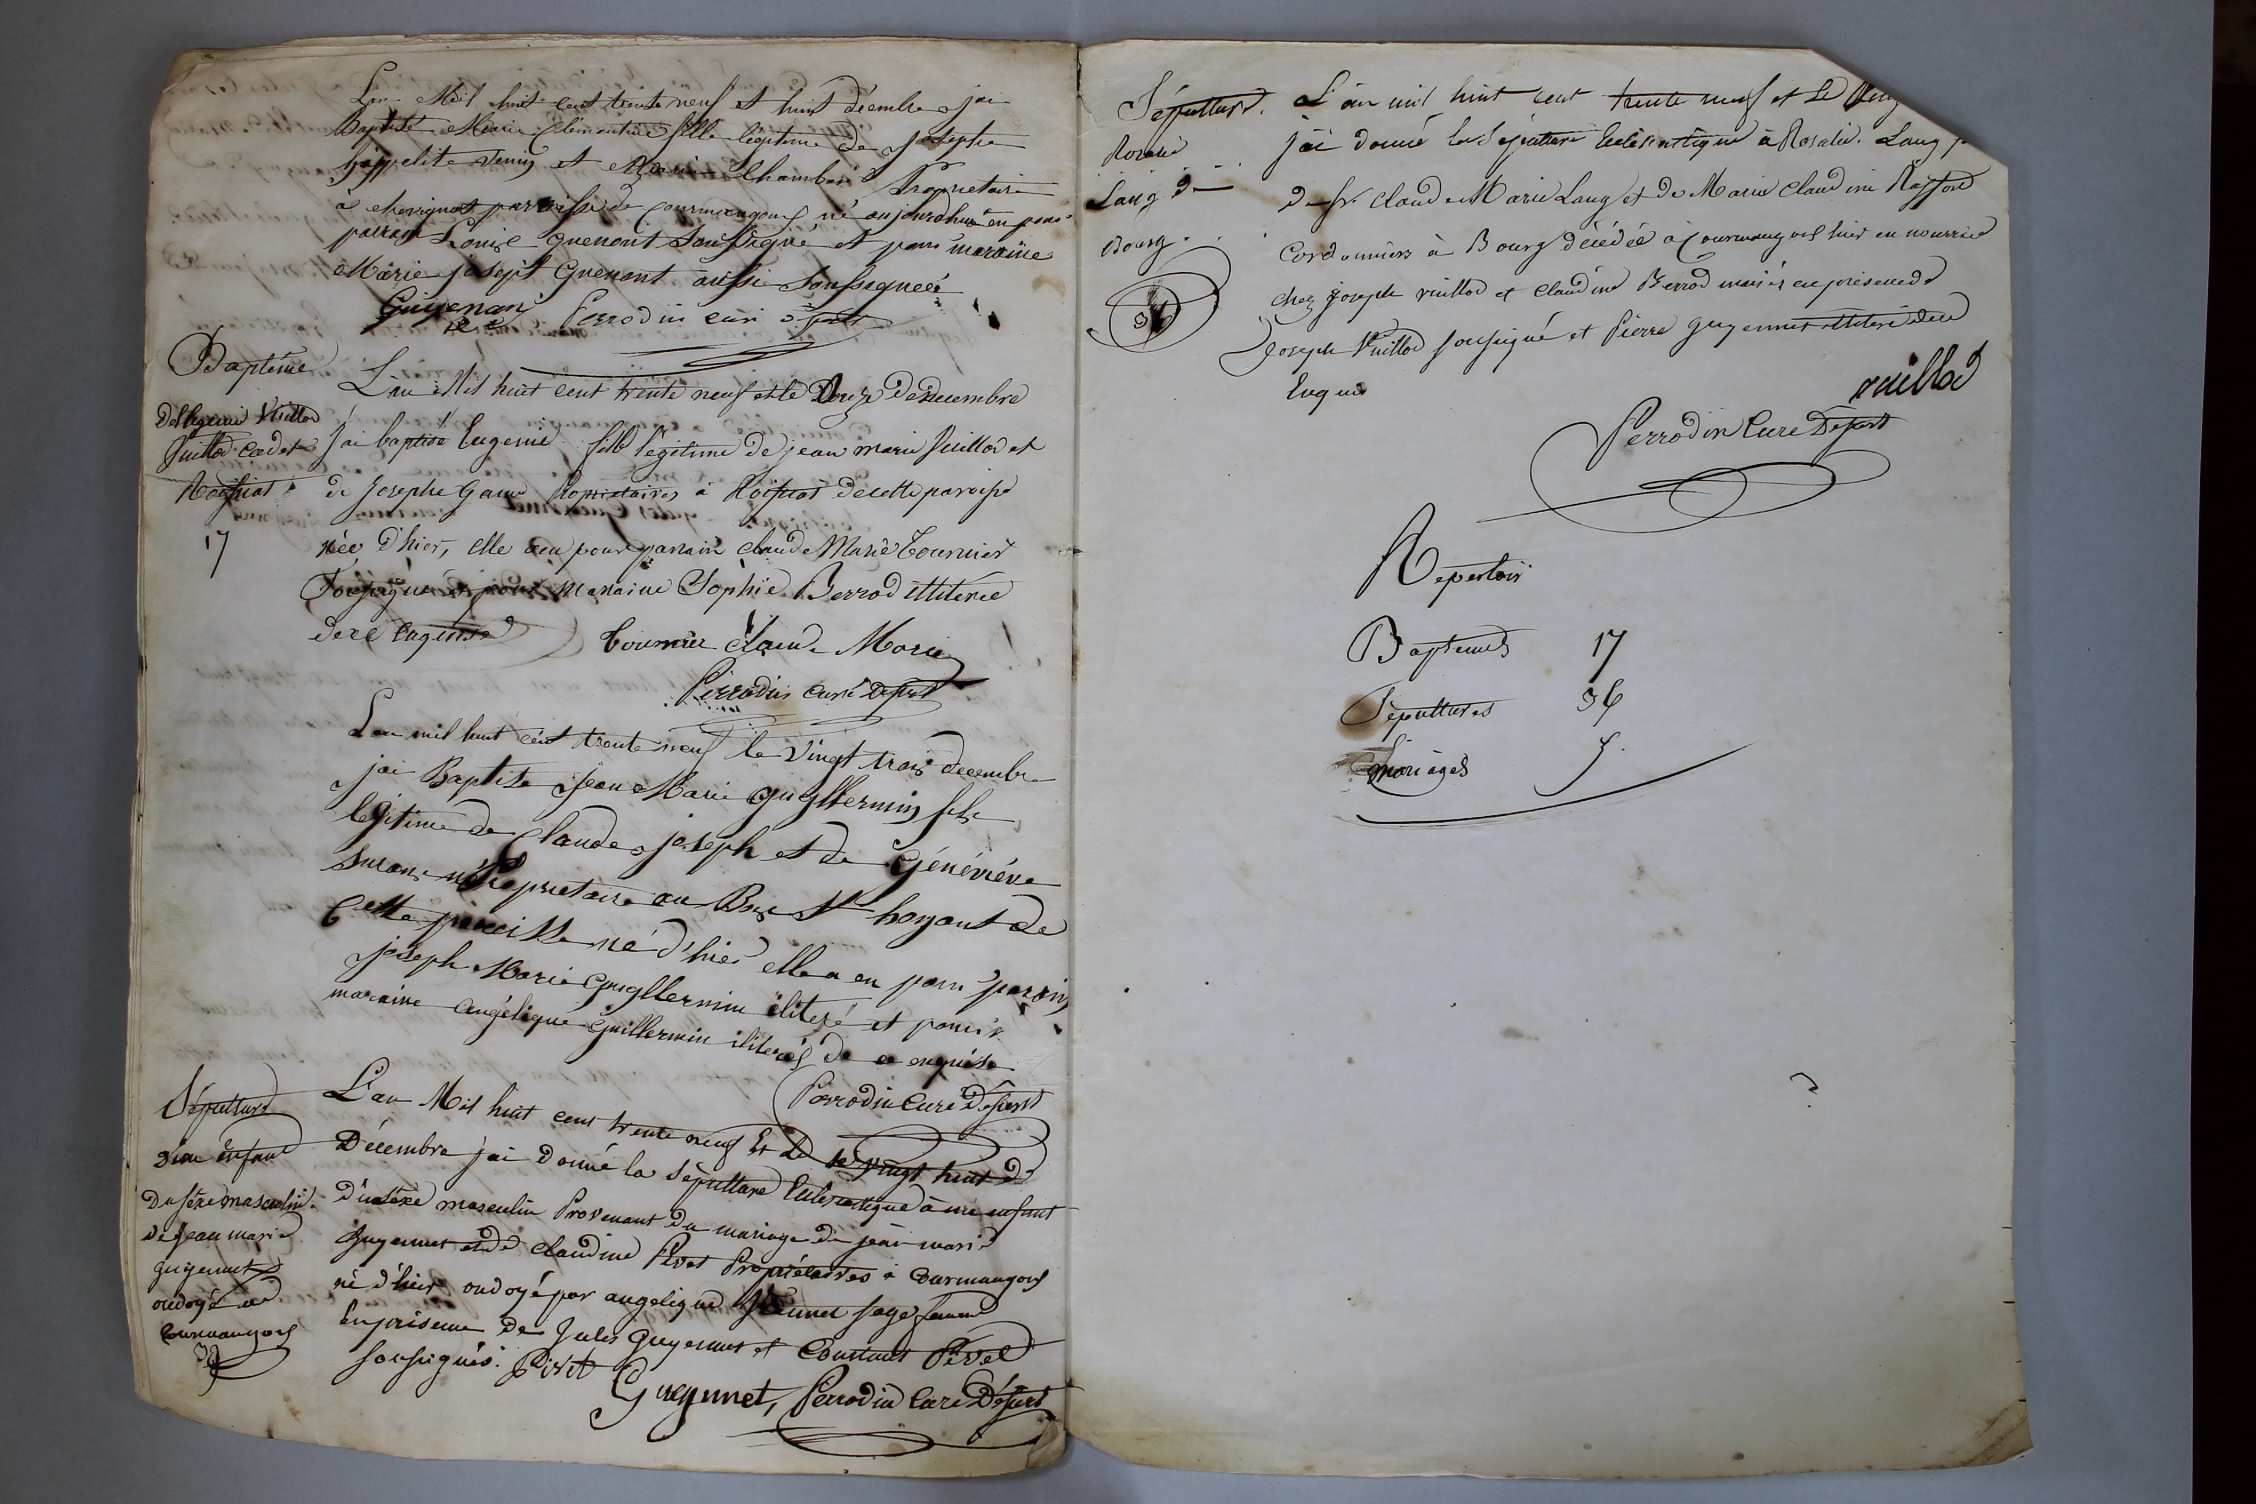 L'an Mil huit cent trente neuf et huit décembre jai
Baptisé Marie Clémentine fille légitime de Joseph
hippolite venin et Marie Chambard Propriétaire
à chevignat paroisse de Courmangoux né aujourdhui en pour
parrain Louise guenont Soussigné et pour maraine
Marie joseph Guenont aussi Soussignée
Guyenan
Perrodin curé dess
Baptême
D'Eugenie Vuillod
Vuillod cadet
Roissiat
17
L'an Mil huit cent trente neuf et le Douze Decembre
J'ai baptisé Eugenie fille légitime de jean marie Vuillod et
de Josephe Game Propriétaires à Roissiat de cette paroisse
née d'hier, elle a eu pour parrain claude Marie Tournier
Soussigné et pour Maraine Sophie Berrod illitérée
de ce enquise
tournier claude Marie
Perrodin curé dess
L'an mil huit cent trente neuf le vingt trois decembre
jai Baptisé Jean Marie guyllermin fils
légitime de Claude joseph et de Généviéve
Propriétaire au Bas St hoyant de
Cette paroisse né d'hier elle a eu pour parain
joseph Marie Guyllermin ilitéré et pour
maraine angélique Guillermin ilitérés de ce enquise
Perrodin Curé dess
Sépulture
D'un enfant
Du sèxe masculin
De Jean marie
guyennet
ondoyé
Courmangoux
L'an Mil huit cent trente neuf Et Le vingt huit
Décembre jai donné la Sépulture Ecclésiastique à un enfant
Du sèxe masculin Provenant du mariage de jean marie
Guyennet et de Claudine Pivet Propriétaires à Courmangoux
né d'hier ondoyé par angelique Guyennet sage femme
En présence de Jules guyennet et Constant Pivet
soussignés. Pivet
Guyennet, Perrodin Curé Dess
Sépulture.
Rosalie
Laug de
Bourg
L'an mil huit cent trente neuf et Le
j'ai donné la Sépulture Ecclésiastique à Rosalie Laug
de Sr. Claude Marie Laug et de Marie Claudine Raffort
Cordonniers à Bourg décédée à Courmangoux hier en nourrice
chez Joseph vuillod et Claudine Berrod mariés en présence de
Joseph Vuillod soussigné et Pierre guyennet illitéré de ce
Enquis
vuillod
Perrodin Curé Dess
Repertoir
Baptemes 17
Sépultures 36
Mariages 5.